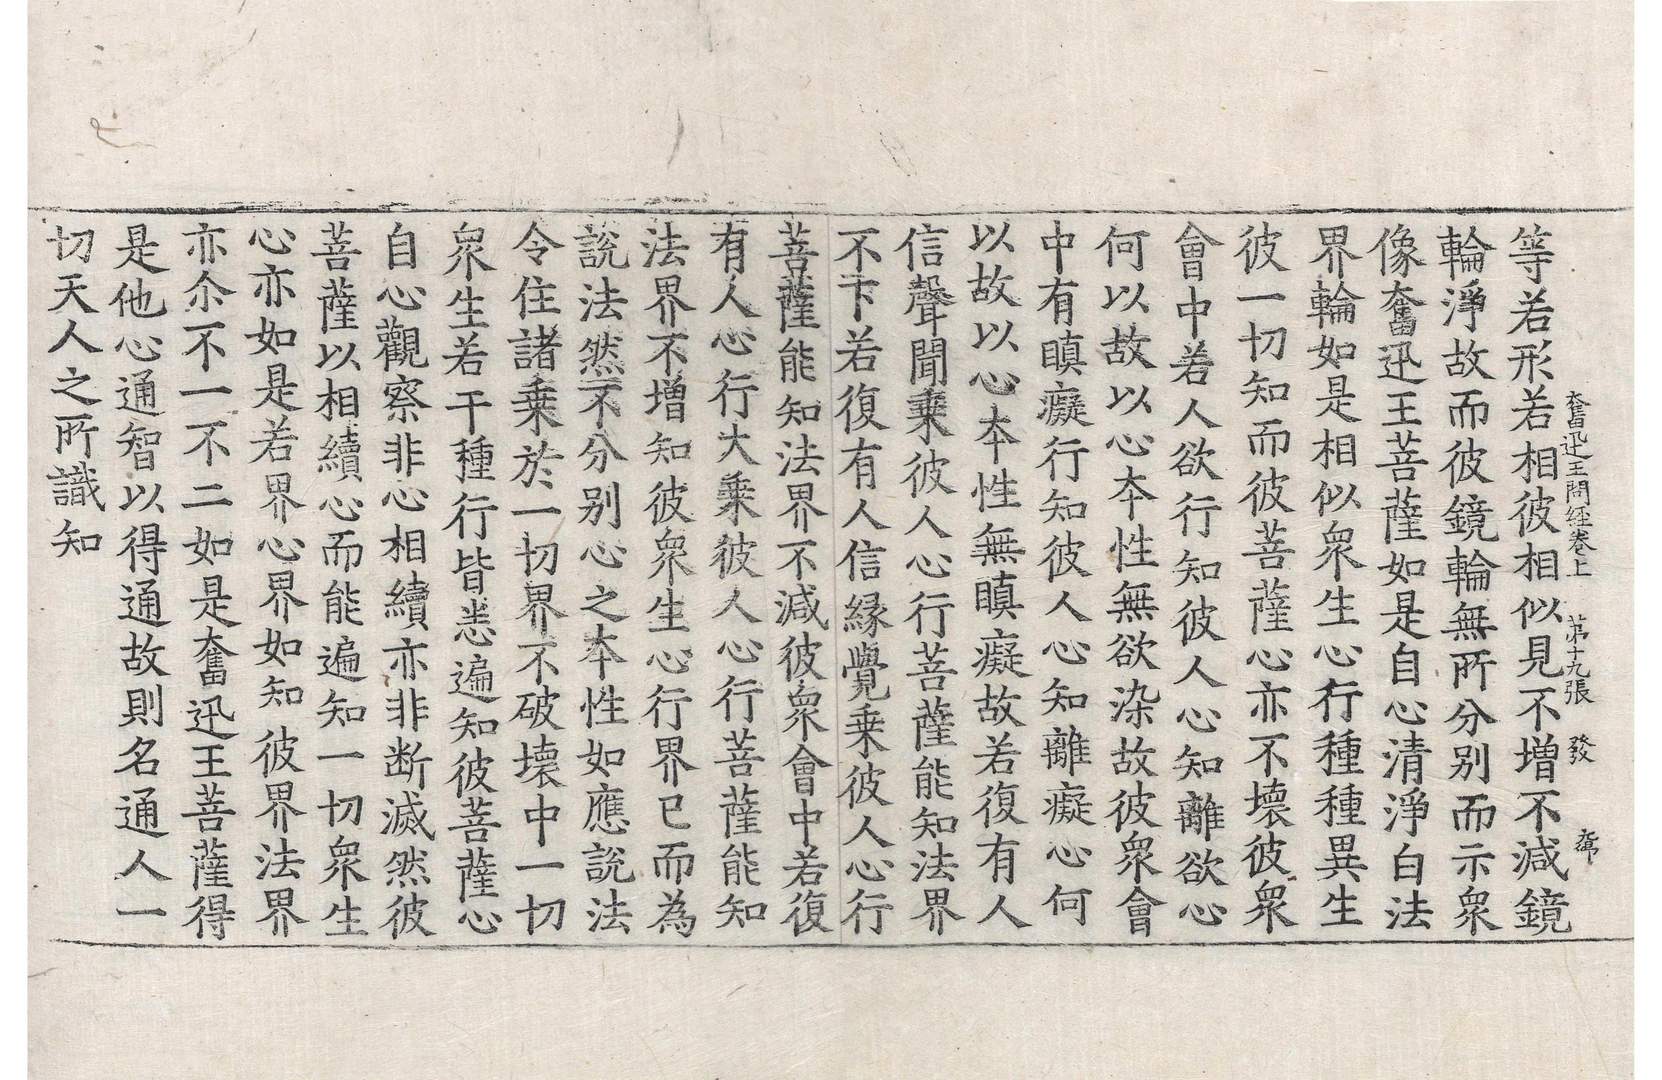 奮迅王問経卷上　第十九張　發
等若形若相彼相似見不増不減鏡
輪淨故而彼鏡輪無所分别而示衆
像奮迅王菩薩如是自心清淨白法
界輪如是相似衆生心行種種異生
彼一切知而彼菩薩心亦不壊彼衆
會中若人欲行知彼人心知離欲心
何以故以心本性無欲染故彼衆會
中有瞋癡行知彼人心知離癡心何
以故以心本性無瞋癡故若復有人
信聲聞乗彼人心行菩薩能知法界
不下若復有人信縁覺乗彼人心行
菩薩能知法界不減彼衆會中若復
有人心行大乗彼人心行菩薩能知
法界不增知彼衆生心行界已而為
説法然不分别心之本性如應説法
令住諸乗於一切界不破壊中一切
衆生若干種行皆悉遍知彼菩薩心
自心觀察非心相續亦非断滅然彼
菩薩以相續心而能遍知一切衆生
心亦如是若界心界如知彼界法界
亦尒不一不二如是奮迅王菩薩得
是他心通智以得通故則名通人一
切天人之所識知